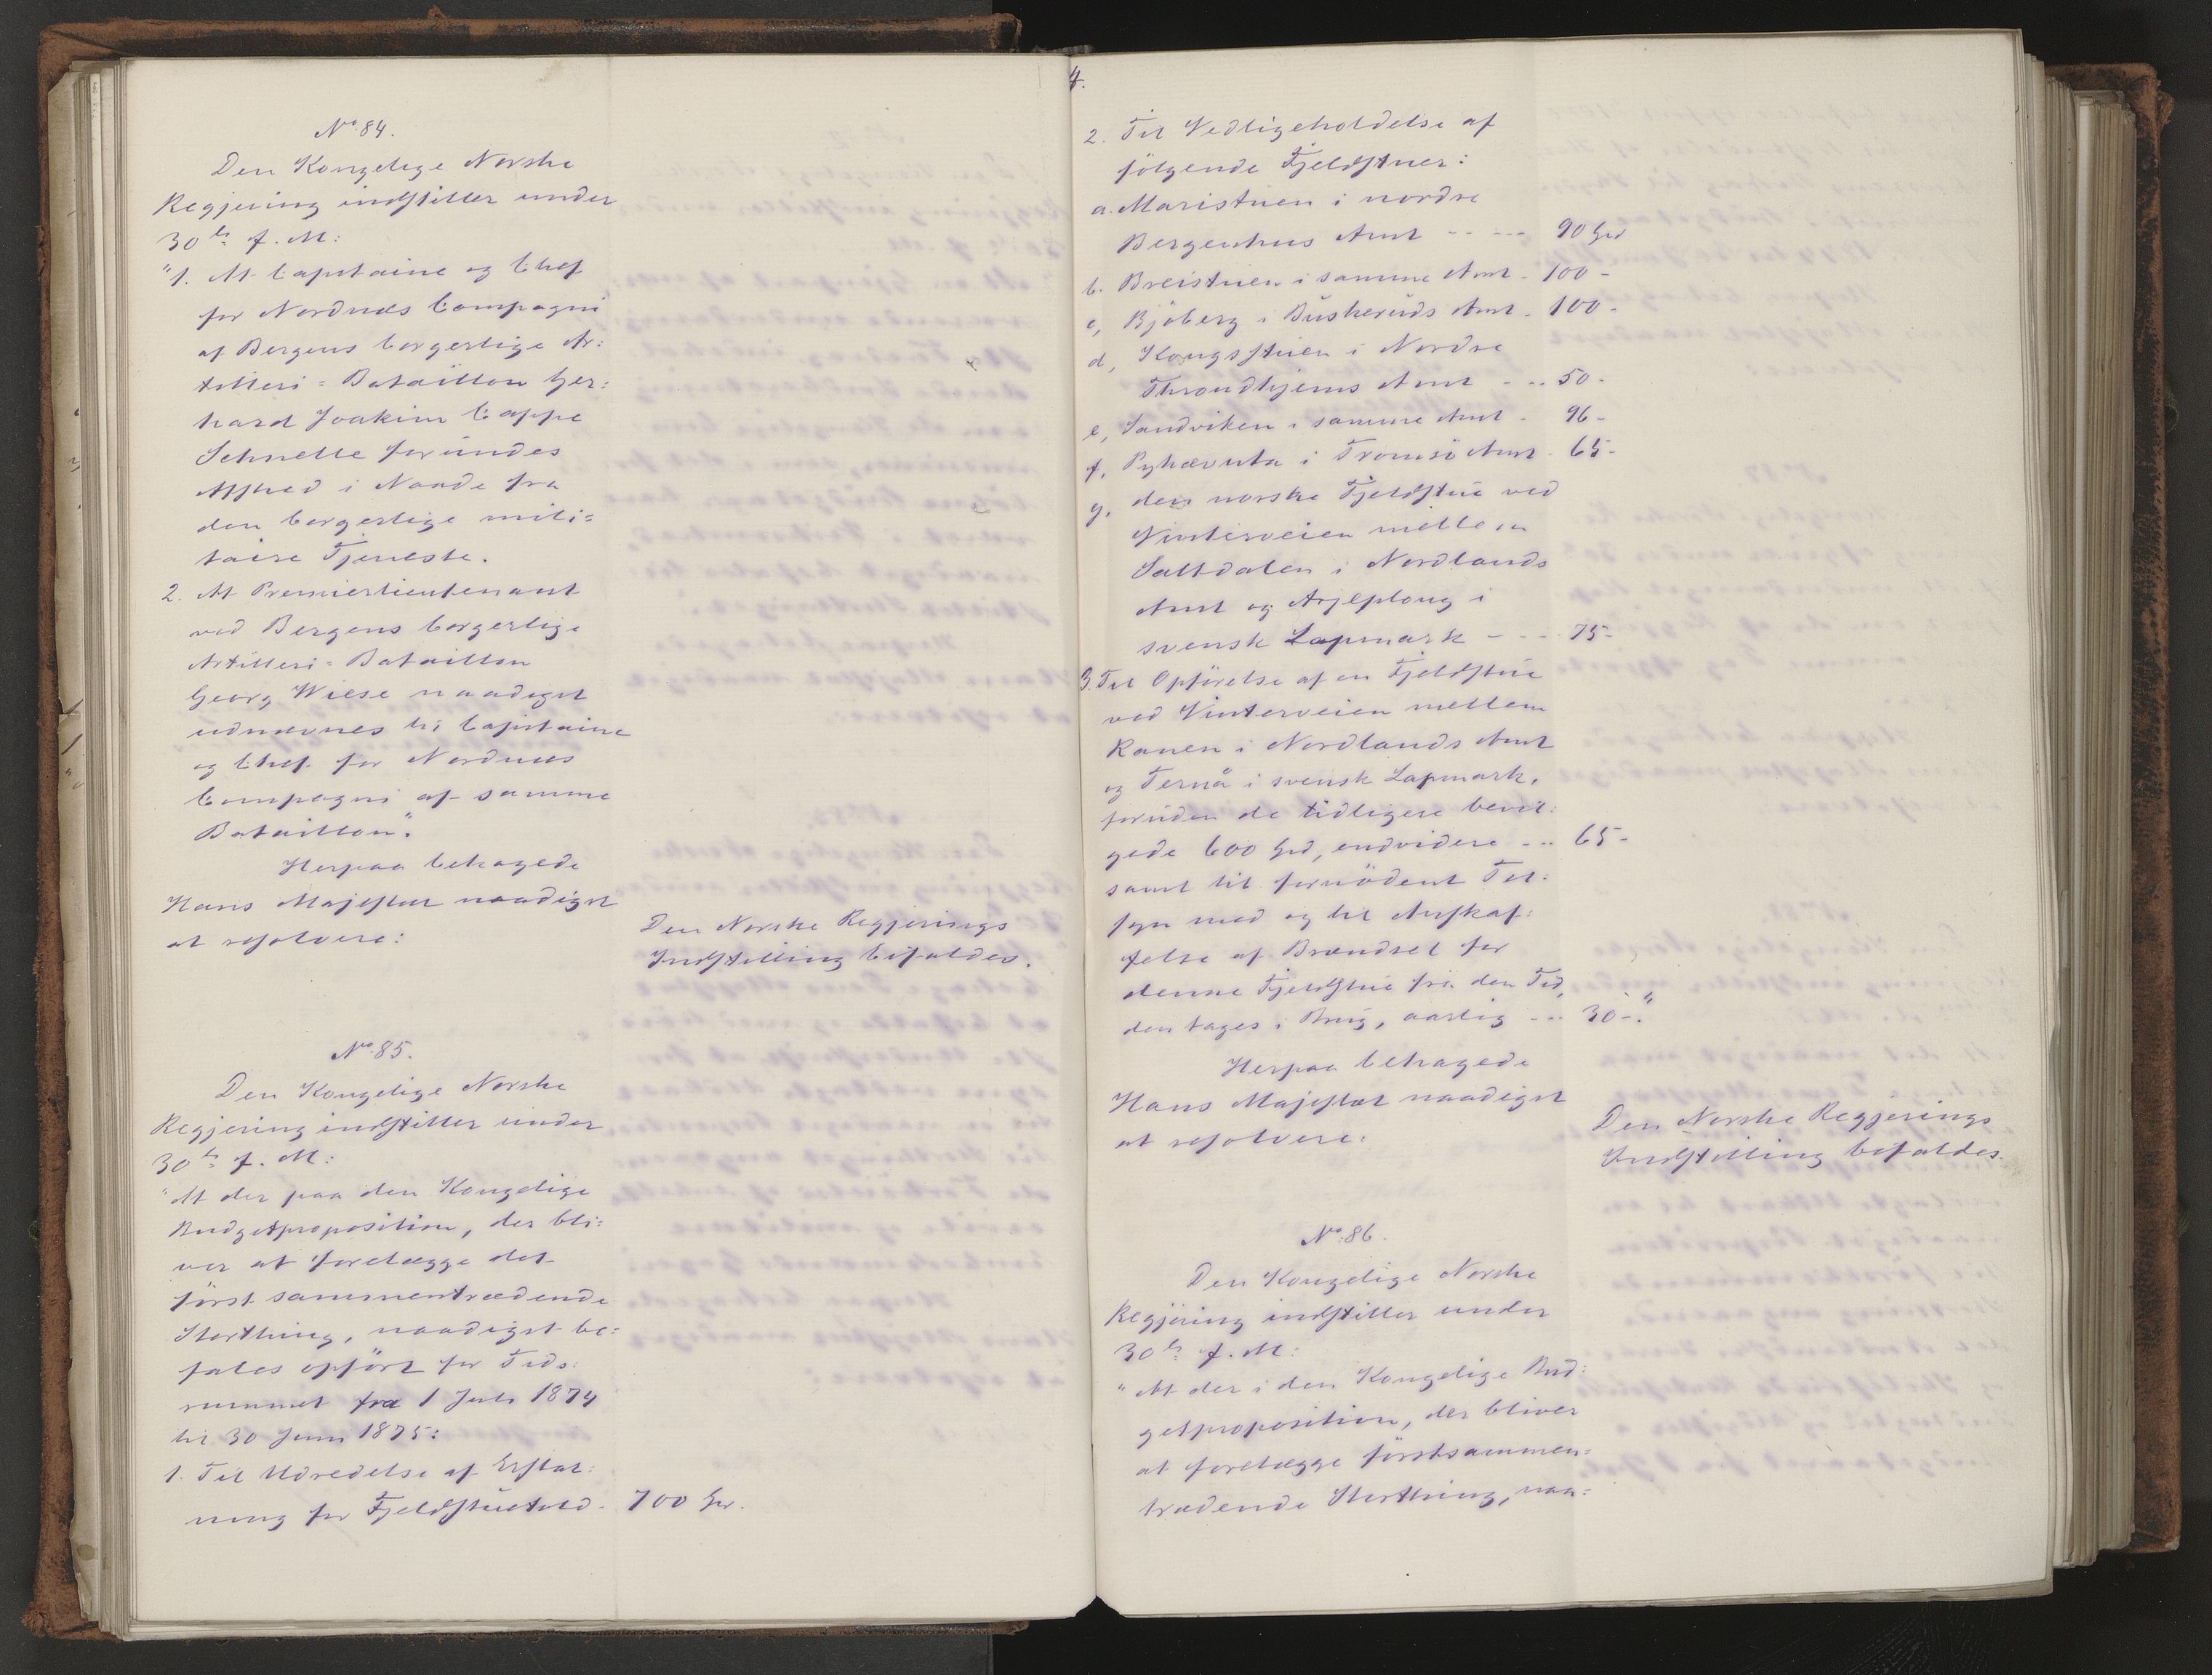 No. 84.
Den Kongelige Norske
Regjering indstiller under
30te f. M:
"1. At Capitaine og Chef
for Nordnæs Compagni
af Bergens borgerlige Ar:
tilleri=Bataillon Ger:
hard Joakim Cappe
Schnelle forundes
Afsked i Naade fra
den borgerlige mili=
taire Tjeneste.
2. At Premierlieutenant
ved Bergens borgerlige
Artilleri=Bataillon
Georg Wiese naadigst
udnævnes til Capitaine
og Chef for Nordnæs
Compagni af samme
Bataillon".
Herpaa behagede
Hans Majestæt naadigst
at resolvere:
Den Norske Regjerings
Indstilling bifaldes.
No. 85.
Den Kongelige Norske
Regjering indstiller under
30te f. M:
"At der paa den Kongelige
Budgetproposition, der bli:
ver at forelægge det
först sammentrædende
Storthing, naadigst be:
fales opfört for Tids:
rummet fra 1 Juli 1874
til 30 Juni 1875:
1. Til Udredelse af Erstat:
ning for Fjeldstuehold - 700 Spd.
4.
2. Til Vedligeholdelse af
fölgende Fjeldstuer:
a. Maristuen i nordre
Bergenhus Amt - - - - 90 Spd
b. Breistuen i samme Amt - 100 -
c, Bjöberg i Buskeruds Amt - 100 -
d, Kongsstuen i Nordre
Throndhjems Amt - - - 50 -
e, Sandviken i samme Amt - 96 -
f, Pyhævuta i Tromsö Amt - 65 -
g, den norske Fjeldstue ved
Vinterveien mellem
Saltdalen i Nordlands
Amt og Arjeploug i
svensk Lapmark - - - 75 -
3. Til Opförelse af en Fjeldstue
ved Vinterveien mellem
Ranen i Nordlands Amt
og Ternå i svensk Lapmark,
foruden de tidligere bevil:
gede 600 Spd, endvidere - - - 65 -
samt til fornödent Til:
syn med og til Anskaf:
felse af Brændsel for
denne Fjeldstue fra den Tid,
den tages i Brug, aarlig - - - 30 -."
Herpaa behagede
Hans Majestæt naadigst
at resolvere:
Den Norske Regjerings
Indstilling bifaldes.
No. 86.
Den Kongelige Norske
Regjering indstiller under
30te f. M:
"At der i den Kongelige Bud:
getproposition, der bliver
at forelægge förstsammen=
trædende Storthing, naa=